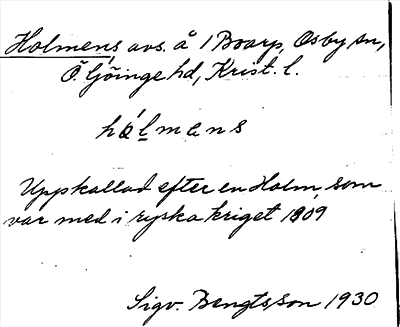 Holmens avs. å 1 Boarp, Osby sn,
Ö. Göinge hd, Krist. l.
hólmans
Uppkallad efter en Holm, som
var med i ryska kriget 1809
Sigv. Bengtsson 1930